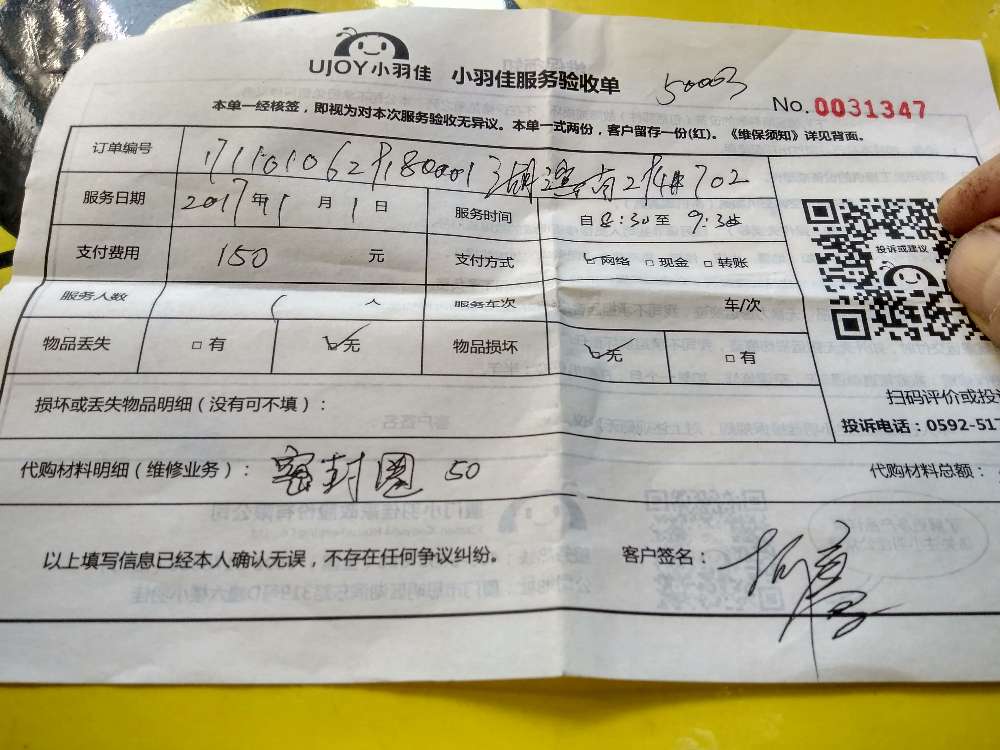 UJOY小羽佳 小羽佳服务验收单 50003
No.0031347
本单一经核签，即视为对本次服务验收无异议。本单一式两份，客户留存一份(红)。《维保须知》详见背面。
订单编号 702
服务日期 2017年 月1日 服务时间 自8:30至9:30
支付费用 150 元 支付方式 网络 □现金 □转账
投诉或建议
服务人数 人 服务车次 车/次
物品丢失 □有 无 物品损坏 无 □有
扫码评价或投
损坏或丢失物品明细(没有可不填)：
投诉电话：0592-517
代购材料明细(维修业务)： 密封圈 50 代购材料总额：
以上填写信息已经本人确认无误，不存在任何争议纠纷。 客户签名：